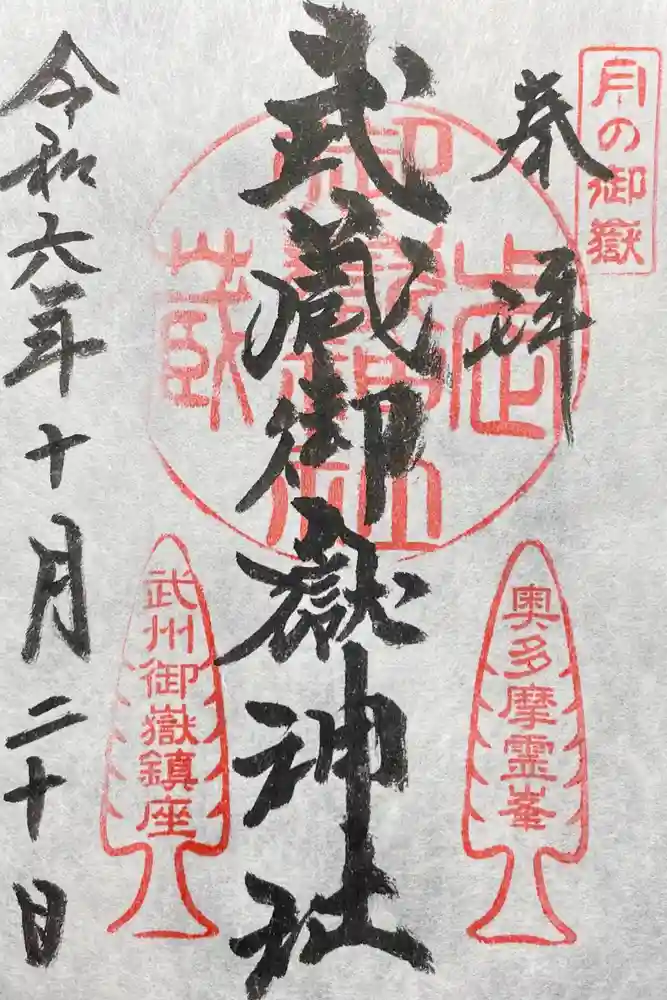 月の御嶽
奉拝
奥多摩霊峯
武蔵御嶽神社
武蔵御嶽神社
武州御嶽鎮座
令和六年十月二十日